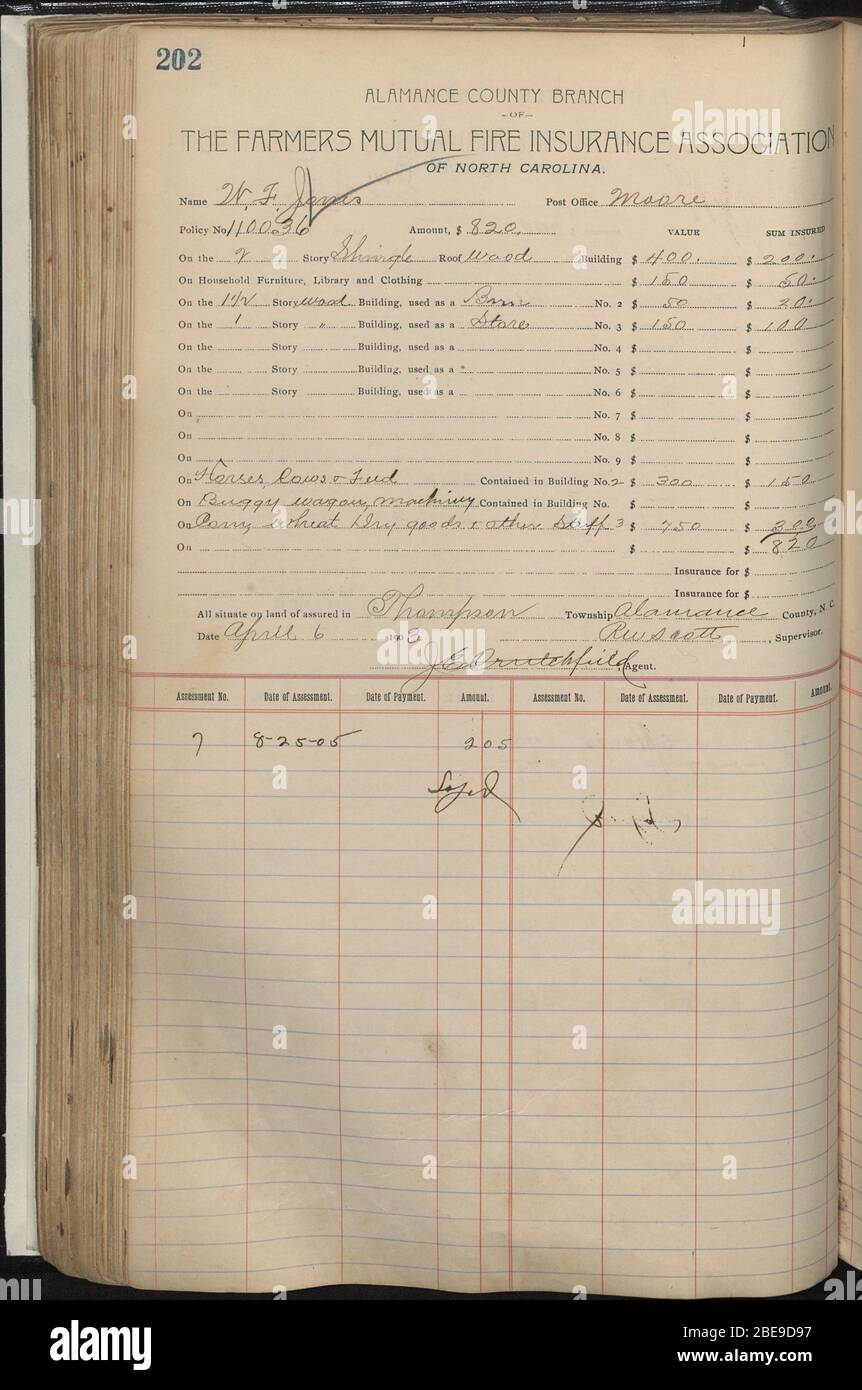 202
ALAMANCE COUNTY BRANCH
-OF-
THE FARMERS MUTUAL FIRE INSURANCE ASSOCIATION
OF NORTH CAROLINA.
Name W. F. Jones Post Office Moore
Policy No. 110036 Amount, $ 820. VALUE SUM INSURED
On the 2 Story Shingle Roof Wood Building $ 400. $ 200.
On Household Furniture, Library and Clothing $ 150 $ 50.
On the 1 1/2 Story Wood Building, used as a Barn No. 2 $ 50 $ 20.
On the 1 Story " Building, used as a Store No. 3 $ 150 $ 100
On the Story Building, used as a No. 4 $ $
On the Story Building, used as a No. 5 $ $
On the Story Building, used as a No. 6 $ $
On No. 7 $ $
On No. 8 $ $
On No. 9 $ $
On Horses Cows & Feed Contained in Building No. 2 $ 300 $ 150
On Buggy wagon, machinery Contained in Building No. $ $
On Corn, wheat Dry goods & other Stuff 3 $ 750 $ 300
On $ $ 820
Insurance for $
Insurance for $
All situate on land of assured in Thompson Township Alamance County, N. C.
Date April 6 190 , Supervisor.
J E Crutchfield, Agent.
Assessment No. Date of Assessment. Date of Payment. Amount. Assessment No. Date of Assessment. Date of Payment. Amount.
7 8-25-05 205
alamy
alamy
Image ID: 2BE9D97
www.alamy.com